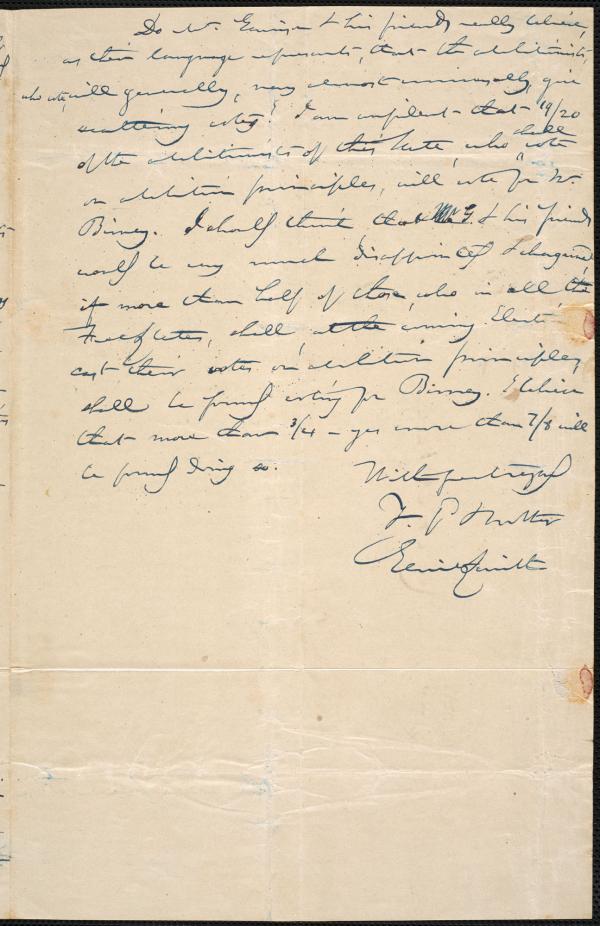 Do Mr. Garrison & his friends really believe,
as their language represents, that the abolitionists,
who vote, will generally, nay almost universally, give
scattering votes? I am confident that 19/20
of the abolitionists of this State, who shall vote
on abolition principles, will vote for Mr.
Birney. I should think that Mr G. & his friends
would be very much disappointed & chagrined
if more than half of those, who in all the
Free States, shall, at the coming Election
cast their votes on abolition principles,
shall be found voting for Birney. I believe
that more than 3/4 - yes more than 7/8 will
be found doing so.
With great regard
Yr. fr. & brother
Gerrit Smith